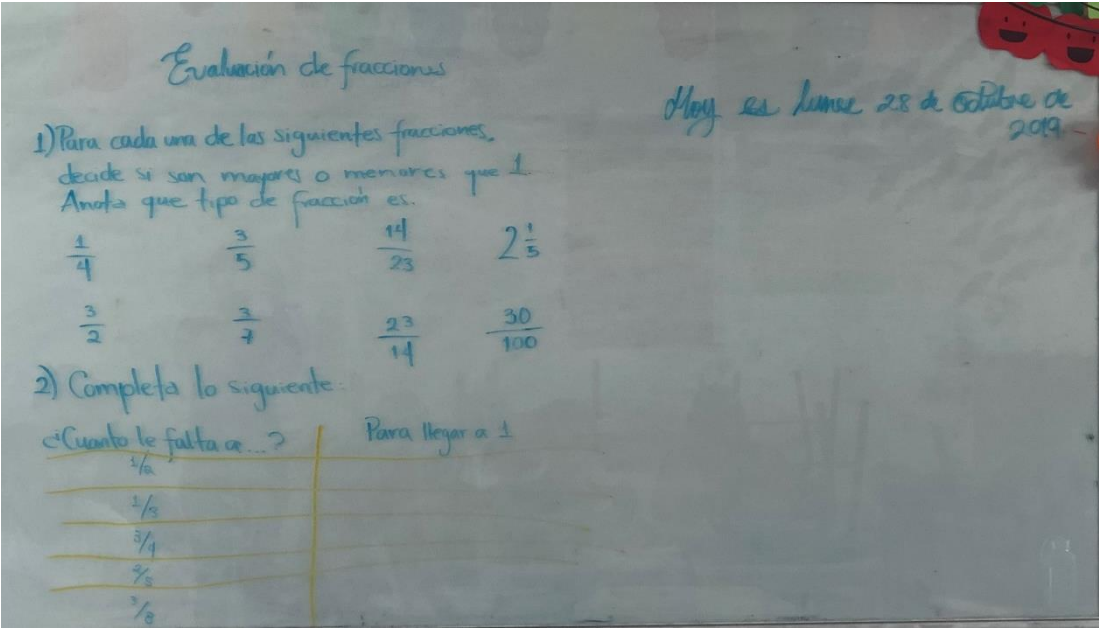 Evaluación de fracciones
Hoy es lunes 28 de octubre de
2019.
1) Para cada una de las siguientes fracciones,
decide si son mayores o menores que 1
Anota que tipo de fracción es.
1/4 3/5 14/23 2 1/5
3/2 3/7 23/14 30/100
2) Completa lo siguiente:
¿Cuanto le falta a...? Para llegar a 1
1/2
1/3
3/4
2/5
/8